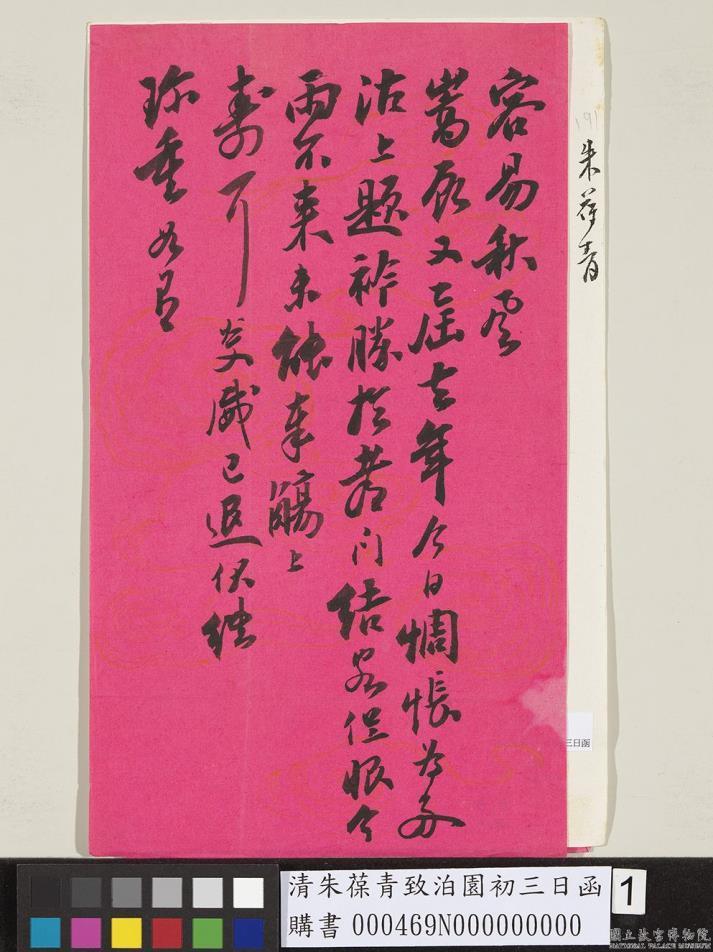 191
朱葆青
容易秋雲
嵩辰又屆去年今日惆悵為多
沽上題襟勝於舊雨結客但恨今
雨不來未能奉觴上
壽耳炎威已退伏維
珍重如月
三日函
清朱葆青致泊園初三日函
購書 000469N000000000
1
國立故宮博物院
NATIONAL PALACE MUSEUM